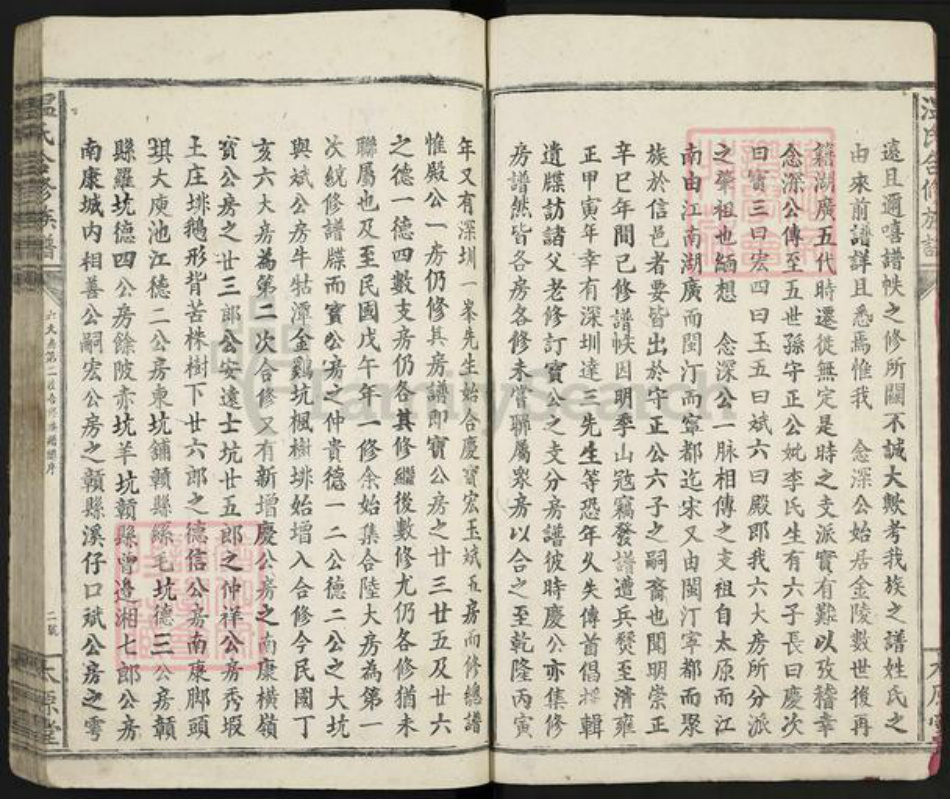 遠且邇嘻譜帙之修所關不誠大歟考我族之譜姓氏之
由來前譜詳且悉焉惟我　念深公始居金陵數世後再
籍湖廣五代時遷徙無定是時之支派實有難以攷稽幸
念深公傳至五世孫守正公妣李氏生有六子長曰慶次
曰寶三曰宏四曰玉五曰斌六曰殿即我六大房所分派
之肇祖也緬想　念深公一脉相傳之支祖自太原而江
南由江南湖廣而閩汀而寧都迄宋又由閩汀寧都而聚
族於信邑者要皆出於守正公六子之嗣裔也聞明崇正
辛巳年間已修譜帙因明季山冦竊發譜遭兵燹至清雍
正甲寅年幸有深圳達三先生等恐年乆失傳首倡採輯
遺牒訪諸父老修訂寶公之支分房譜彼時慶公亦集修
房譜然皆各房各修未嘗聯屬衆房以合之至乾隆丙寅
年又有深圳一峯先生始合慶寶宏玉斌五房而修總譜
惟殿公一房仍修其房譜即寶公房之廿三廿五及廿六
之德一德四數支房仍各其修繼後數修尤仍各修猶未
聯屬也及至民國戊午年一修余始集合陸大房為第一
次統修譜牒而寶公房之仲貴德一二公德二公之大坑
與斌公房牛牯潭金鷄坑楓樹埂始增入合修今民國丁
亥六大房為第二次合修又有新增慶公房之南康橫嶺
寶公房之廿三郎公安遠士坑廿五郎之仲祥公房秀塅
王庄埂鵝形背苦株樹下廿六郎之德信公房南康脚頭
垻大庾池江德二公房東坑鋪贛縣緜毛坑德三公房贛
縣羅坑德四公房餘陂赤坑羊坑贛縣曾邉湘七郎公房
南康城內相善公嗣宏公房之贛縣溪仔口斌公房之雩
溫氏合修族譜
二號
太原堂